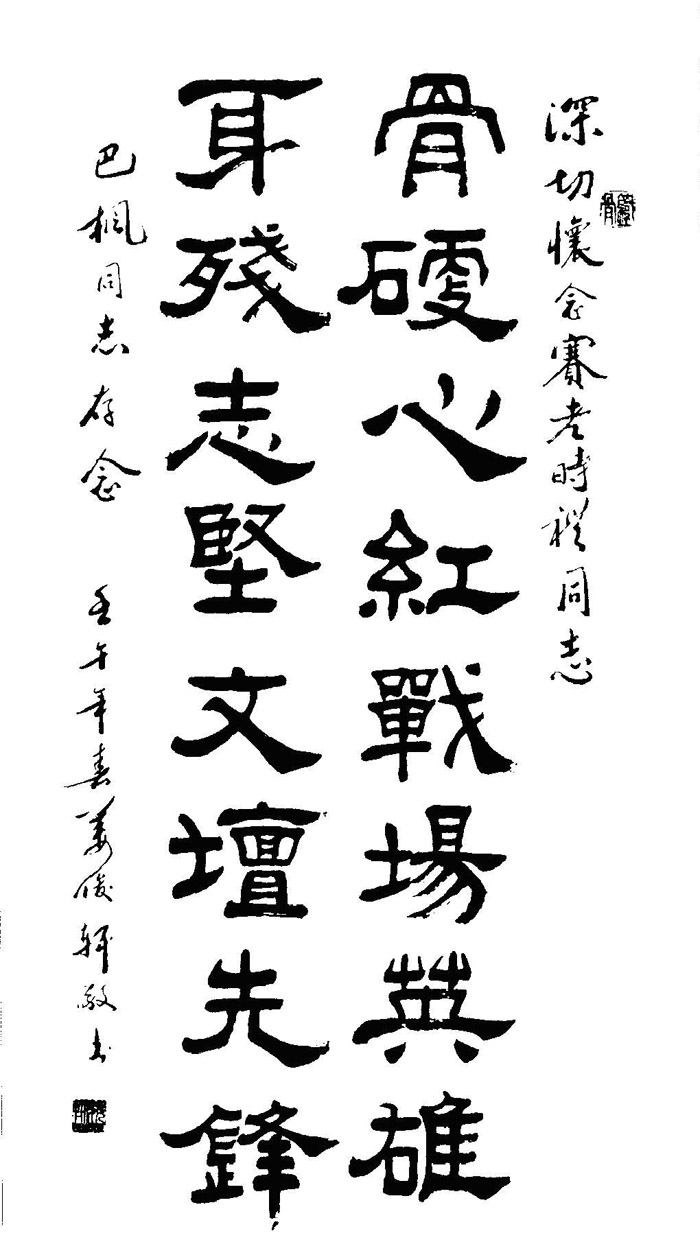 深切懷念賽老時禮同志
骨硬心紅戰場英雄
耳殘志堅文壇先鋒
巴楓同志存念
壬午年春姜俊軒敬書